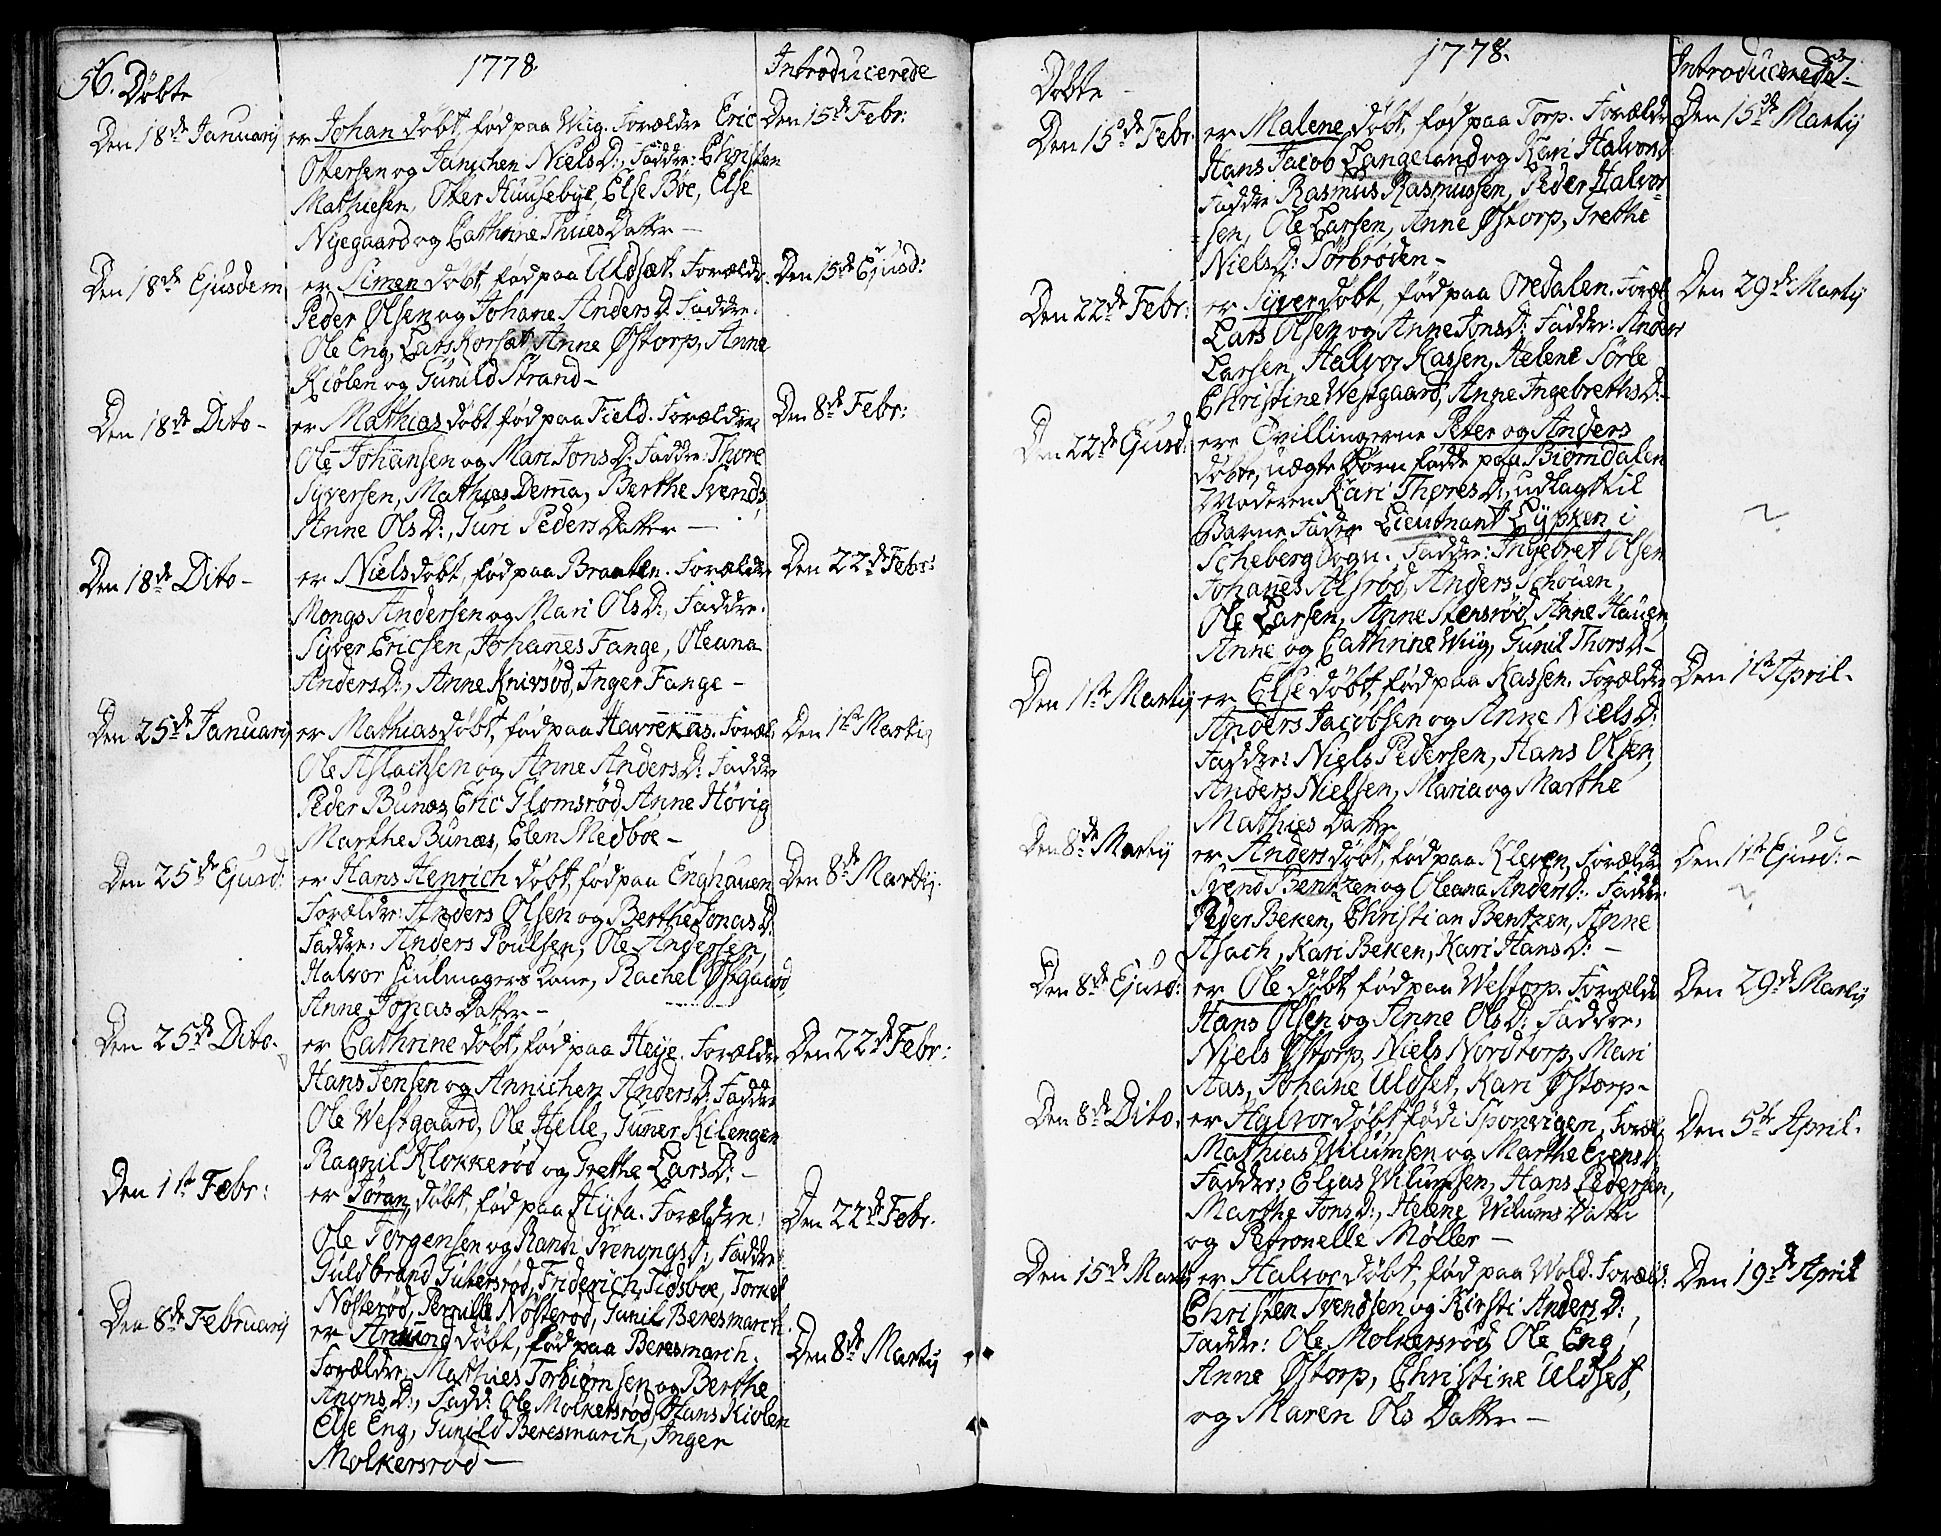 56. Døbte
1778.
Introducerede
Den 18de Januarij
er Johan døbt, fød paa Wiig. Forældre Eric
Den 15de Febr:
Ottersen og Janichen Niels D:, Faddre: Christen
Mathiesen, Otter Huusebye, Else Bøe, Else
Nyegaard og Cathrine Thues Datter —
Den 18de Ejusdem
er Simen døbt, fød paa Uldsæt. Forældr.
Den 15de Ejusd:
Peder Olsen og Johane Anders D. Faddre:
Ole Eng, Lars Korsæt, Anne Østorp, Anne
Kiølen og Gunild Strand —
Den 18de Dito —
er Mathias døbt, fød paa Field. Forældre
Den 8de Febr:
Ole Johansen og Mari Jons D: Faddre: Thore
Syversen, Mathias Dema, Berthe Svends,
Anne Ols D:, Guri Peders Datter —
Den 18de Dito —
er Niels døbt, fød paa Braaten. Forældre
Den 22de Febr:
Mongs Andersen og Mari Ols D:, Faddre.
Syver Ericsen, Johanes Fange, Oleana
Anders D:, Anne Knivsød, Inger Fange —
Den 25de Januarij
er Mathias døbt, fød paa Havrekas. Foræl.
Den 1ste Martij
Ole Aslachsen og Anne Anders D: Faddre
Peder Bunæs, Eric Glomsrød, Anne Høvig
Marthe Bunæs, Elen Medboe —
Den 25de Ejusd:
er Hans Henrich døbt, fød paa Enghauen
Den 8de Martij.
Forældre: Anders Olsen og Berthe Jonas D:
Faddre: Anders Poulsen, Ole Andersen,
Halvor Seilmagers Kone, Rachel Østgaard,
Anne Jonas Datter —
Den 25de Dito.
er Cathrine døbt, fød paa Heye. Forældre
Den 22de Febr:
Hans Jensen og Annichen Anders D: Faddre
Ole Westgaard, Ole Helle, Guner Kilengen
Ragnil Klokkerød og Grethe Lars D: —
Den 1ste Febr:
er Jøran døbt, fød paa Hyta. Forældre:
Den 22de Febr.
Ole Jørgensen og Randi Svenongs D:, Faddre:
Guldbrand Gutersrød, Friderich Tidsboe, Torkel
Nøsterød, Pernille Nøsterød, Gunil Beresmarch.
Den 8de Februarij
er Anund døbt, fød paa Beresmarch.
Den 8de Martij
Forældre: Mathies Torbiørnsen og Berthe
Anons D:, Fadd: Ole Molkersrød, Hans Kiølen
Else Eng, Gunild Beresmarch, Inger
Molkersrød —
Døbte —
1778.
Introducerede 57.
Den 15de Febr.
er Malene døbt, fød paa Torp. Forældr
Den 15de Martij
Hans Jacob Langeland og Kari Halvors D
Faddre Rasmus Rasmussen, Peder Halvor-
sen, Ole Larsen, Anne Østorp, Grethe
Niels D: Sørbrøden —
Den 22de Febr:
er Syver døbt, fød paa Oredalen. Foræl.
Den 29de Martij
Lars Olsen og Anne Jons D: Faddre: Anders
Larsen, Halvor Kassen, Helene Sørle
Christine Westgaard, Anne Ingebreths D: —
Den 22de Ejusd:
ere Tvillingerne Peter og Anders
døbte, uægte Børn fødde paa Biørndalen
Moderen Kari Thores D:, udlagt til
Barne Fader Lieutnant Lypken i
Scheberg Sogn. Faddre: Ingebret Olsen
Johanes Alsrød, Anders Schouen,
Ole Larsen, Anne Stensrød, Anne Hauen
Anne og Cathrine Wiig, Gunil Thors D —
Den 1ste Martij
er Else døbt, fød paa Kassen. Forældre
Den 1ste April.
Anders Jacobsen og Anne Niels D:
Faddre: Niels Pedersen, Hans Olsen,
Anders Nielsen, Maria og Marthe
Mathies Datter
Den 8de Martij
er Anders døbt, fød paa Kleven, Forældre
Den 1ste Ejusd: —
Svend Bentzen og Oleana Anders D: Faddre
Peder Beken, Christian Bentzen, Anne
Asach, Kari Beken, Kari Hans D: —
Den 8de Ejusd:
er Ole døbt fød paa Westorp. Forældr
Den 29de Martij
Hans Olsen og Anne Ols D: Faddre:
Niels Østorp, Niels Nordtorp, Mari
Aas, Johane Uldset, Kari Østorp —
Den 8de Dito.
er Halvor døbt fød i Sponvigen, Foræl,
Den 5te April.
Mathias Wilumsen og Marthe Evens D:
Faddre: Elias Wilumsen, Hans Pedersen,
Marthe Jons D:, Helene Wilums Datter
og Petronelle Møller —
Den 15de Martij
er Halvor døbt, fød paa Wold. Foræld:
Den 19de April
Christen Svendsen og Kirsti Anders D:,
Faddre: Ole Molkersrød, Ole Eng,
Anne Østorp, Christine Uldset,
og Maren Ols Datter —